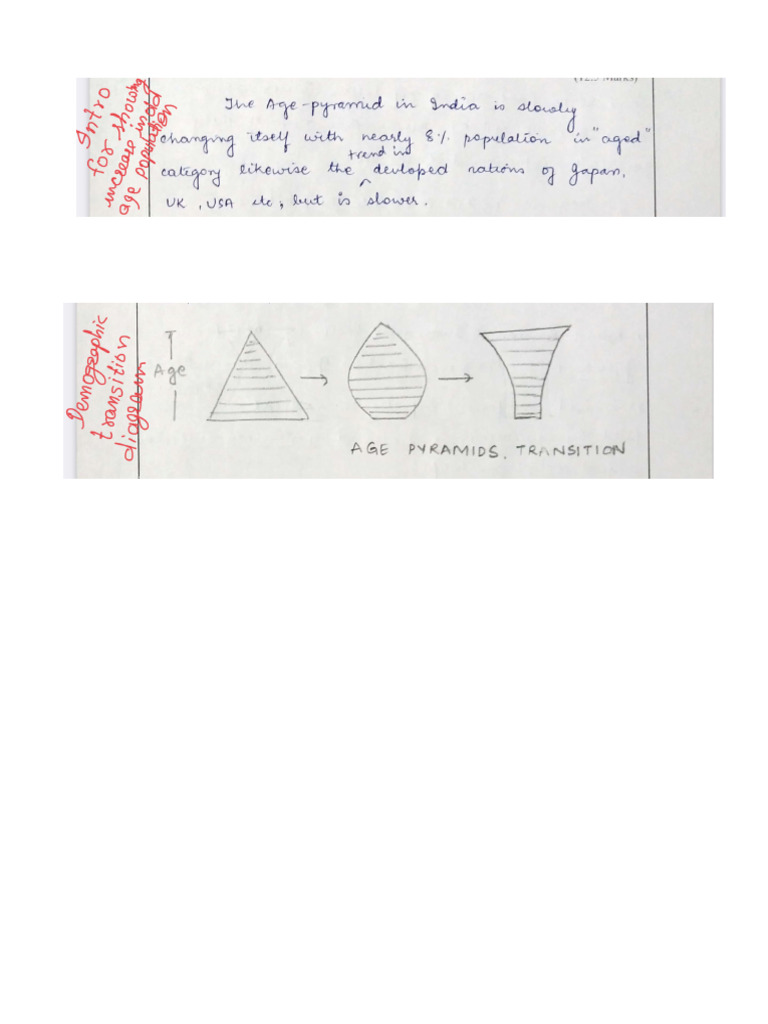 (12.5 Marks)
Intro
for showing
increase in old
age population
The Age-pyramid in India is slowly
changing itself with nearly 8% population in "aged"
trend in
category likewise the devloped nations of Japan,
UK, USA etc, but is slower.
Demographic
transition
diagram
Age
AGE PYRAMIDS, TRANSITION